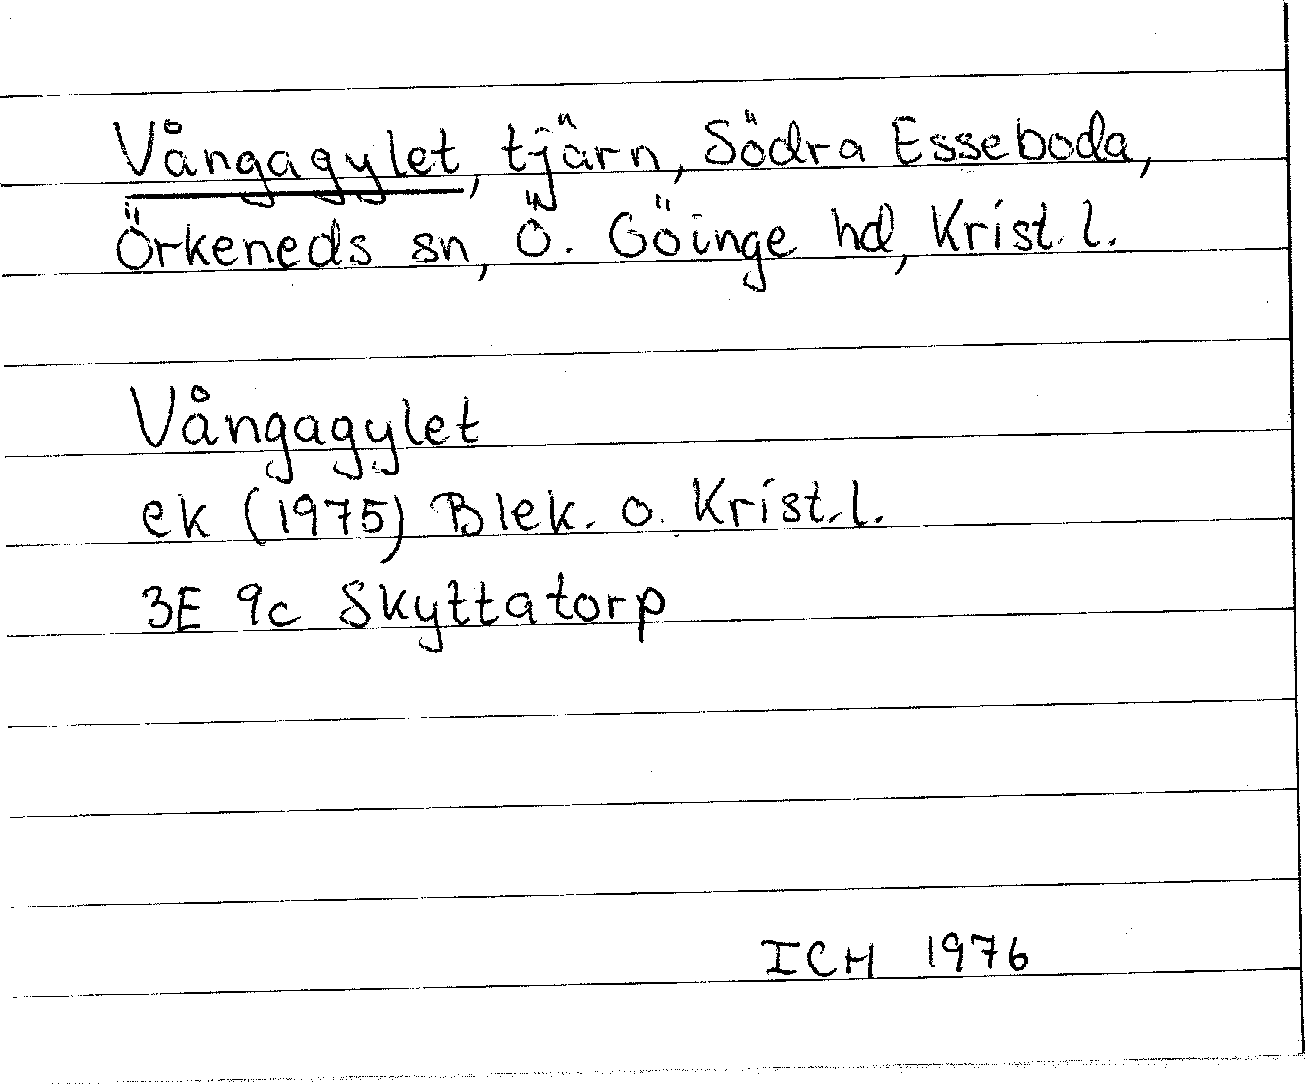 Vångagylet, tjärn, Södra Esseboda,
Örkeneds sn, Ö. Göinge hd, Krist. l.
Vångagylet
ek (1975) Blek. o. Krist. l.
3E 9c Skyttatorp
ICH 1976